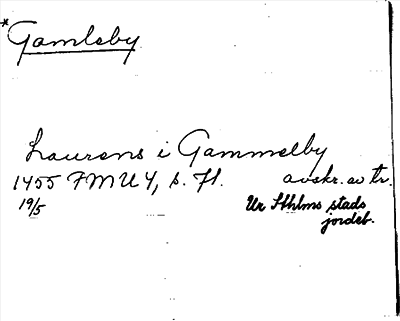 *Gamleby
Laurens i Gammelby
1455 FMU4, s. 71. avskr. av tr.
19/5 Ur Sthlms stads
jordeb.